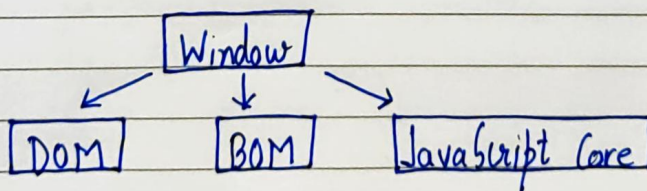 Window
DOM BOM JavaScript Core